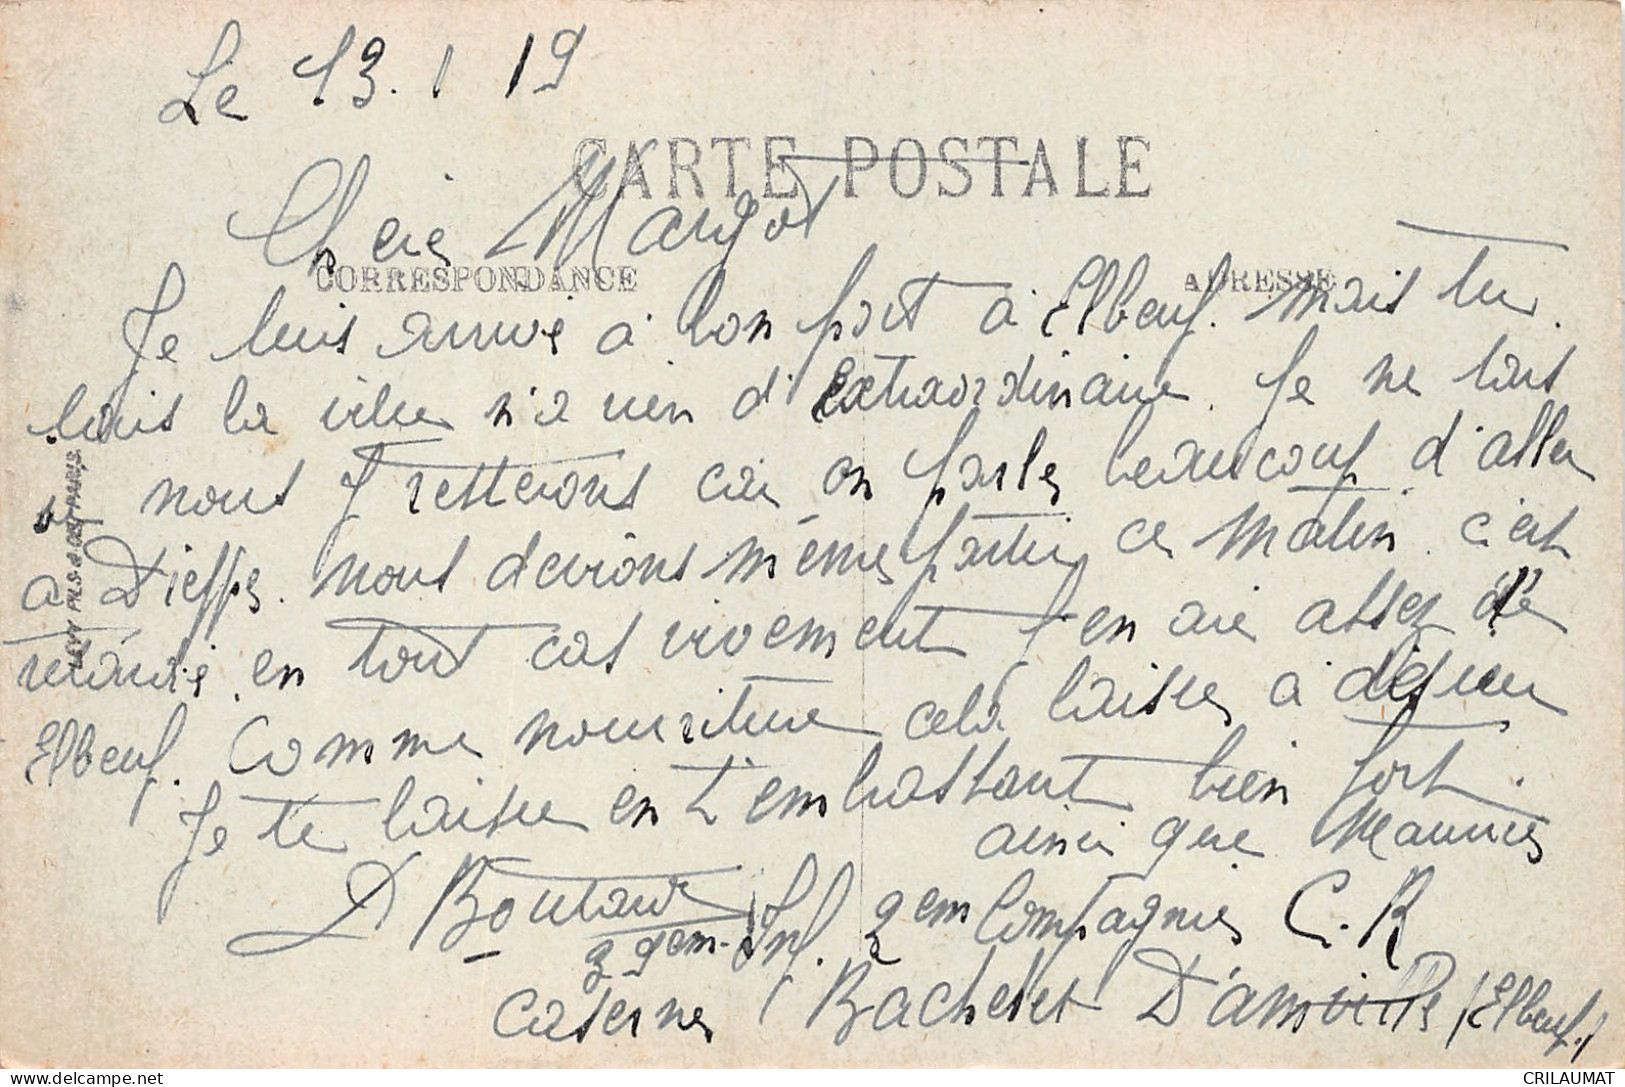 Le 13. 1 19
CARTE POSTALE
Cheie Margot
CORRESPONDANCE
ADRESSE
Je suis arrivé à bon port à Elbeuf. mais tu
sais la ville n'a rien d'extraordinaire. Je ne sais
si nous y resterons car on parle beaucoup d'aller
a Dieppe. nous devrions même partir ce matin c'est
retardé en tout cas vivement j'en aie assez de
Elbeuf. Comme nourriture cela laisse à désirer
Je te laisse en t'embrassant bien fort.
ainsi que Maurice
D Boutard
39em Inf. 2em Compagnie C. R
Caserne (Bachelet D'amville (Elbeuf.)
LEVY FILS & CIE PARIS.
CRILAUMAT